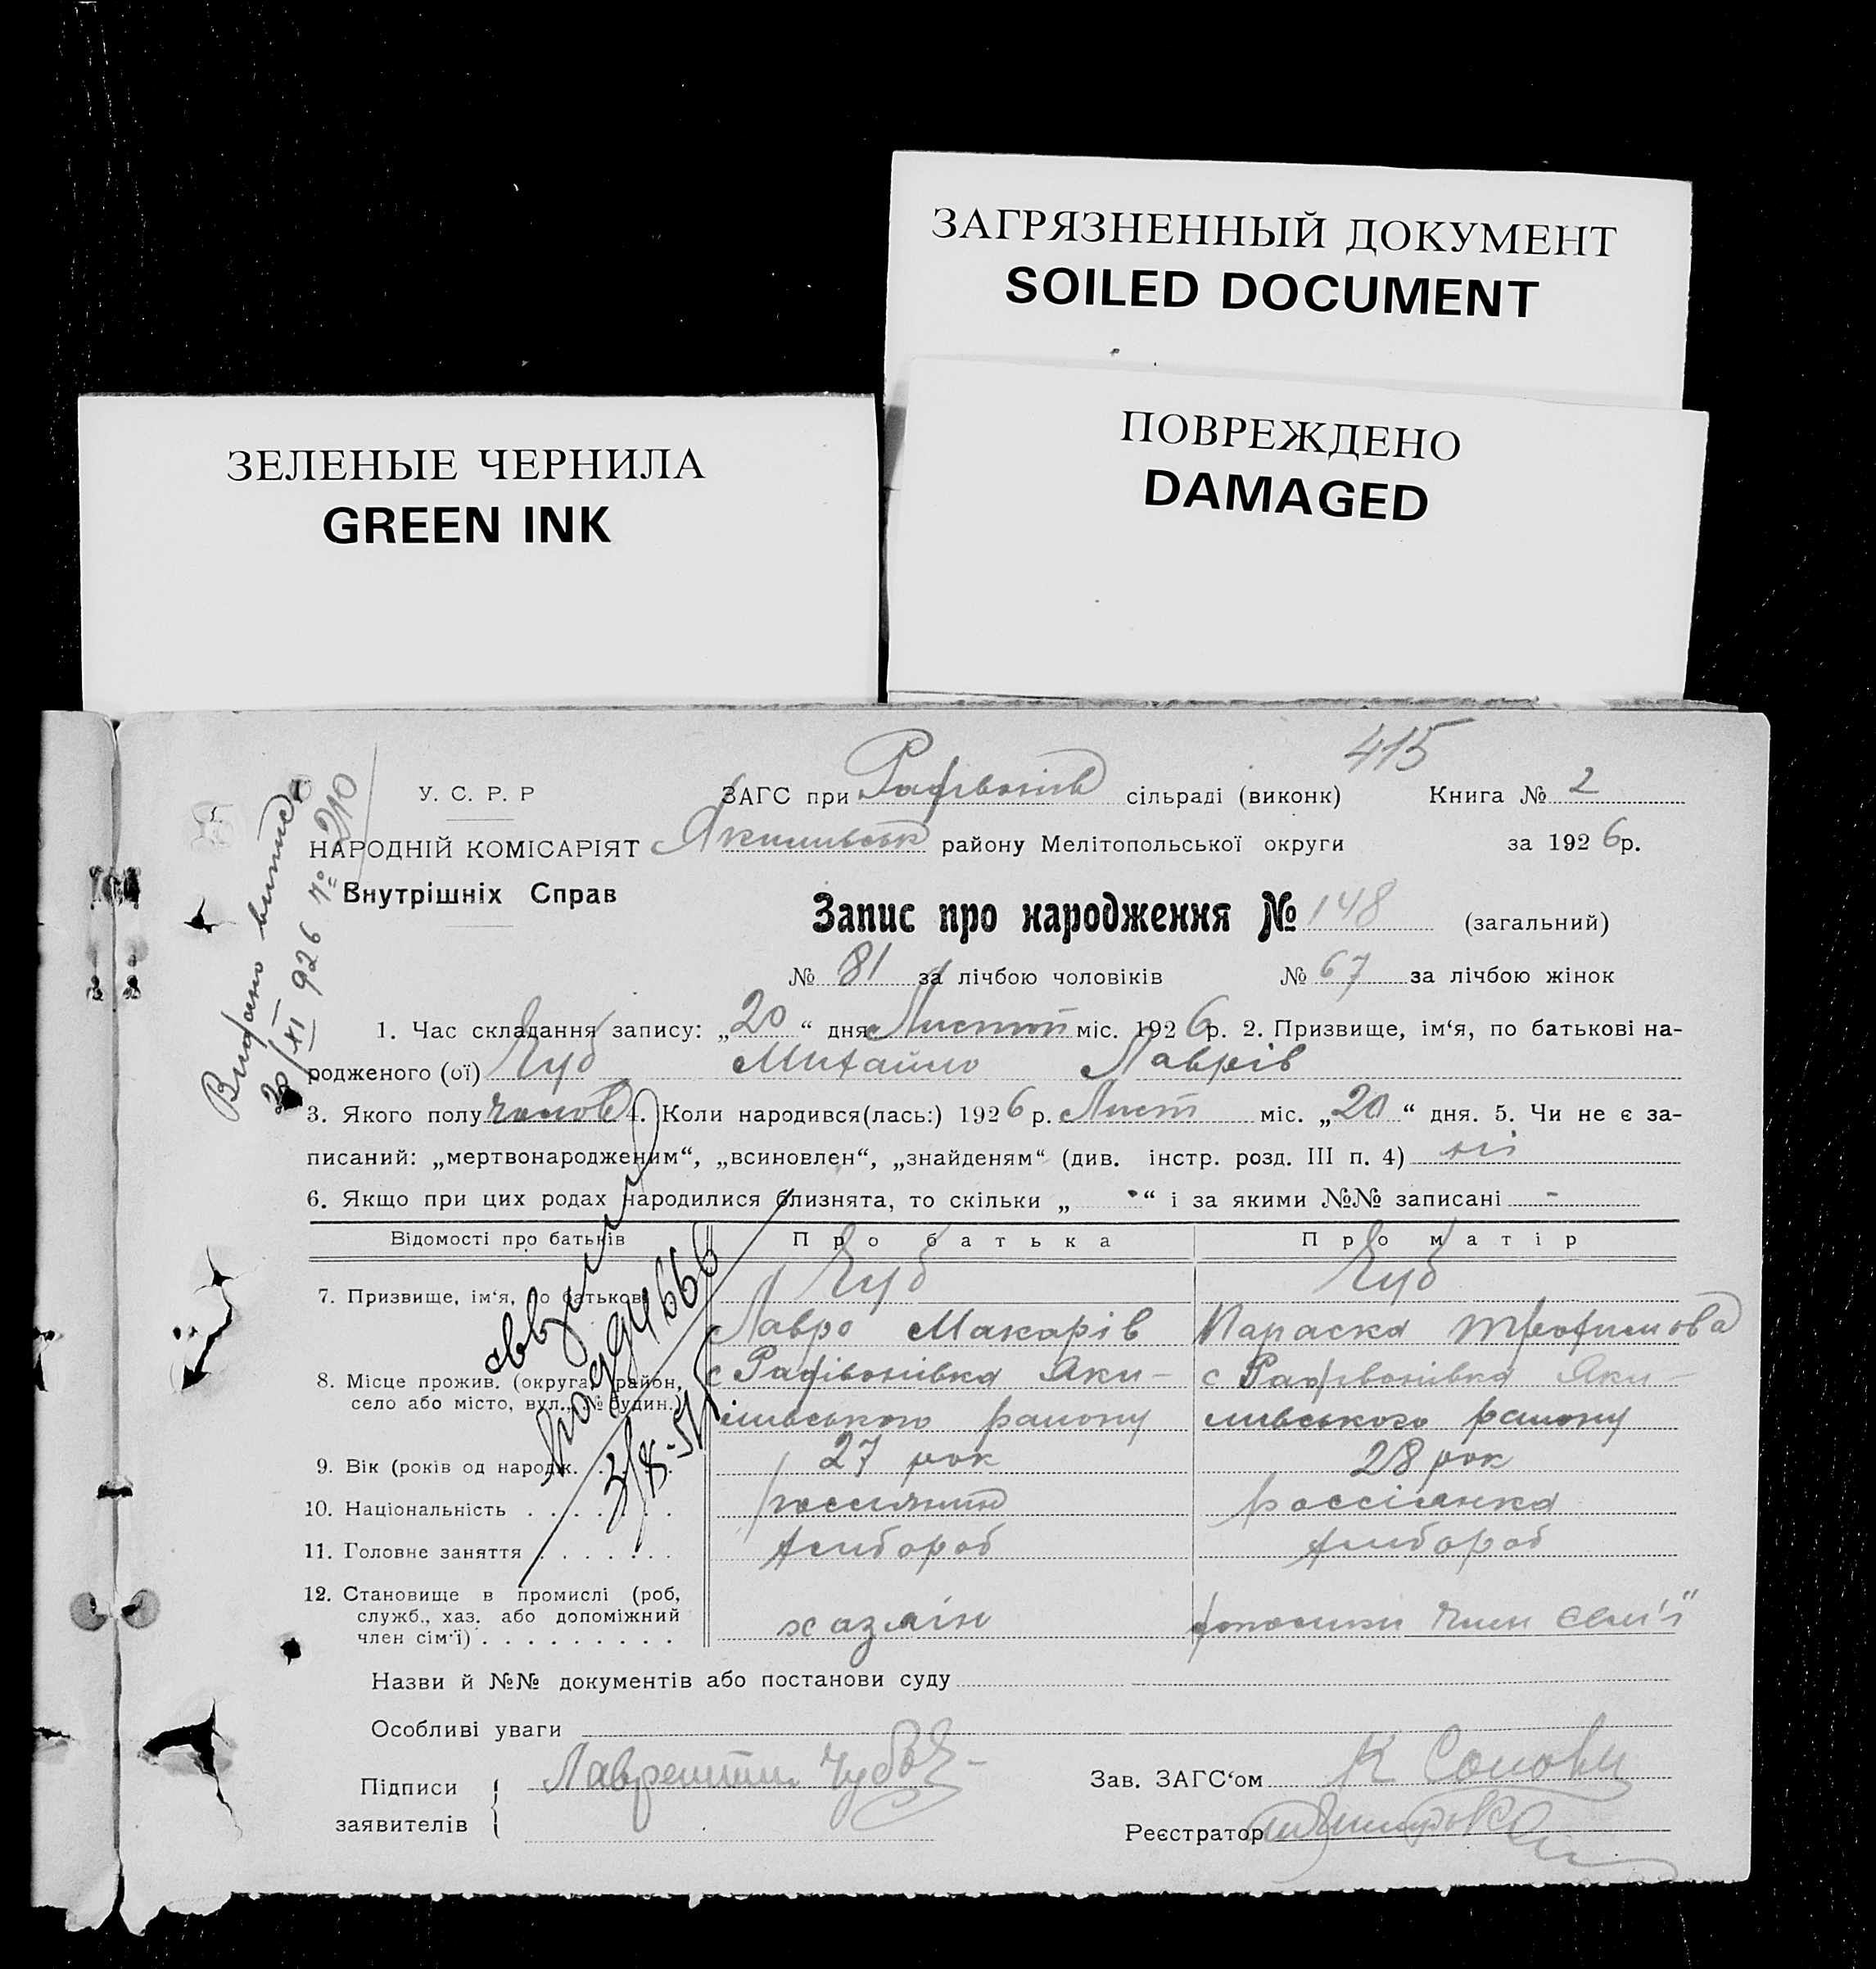 ЗАГРЯЗНЕННЫЙ ДОКУМЕНТ
SOILED DOCUMENT
ЗЕЛЕНЫЕ ЧЕРНИЛА
GREEN INK
ПОВРЕЖДЕНО
DAMAGED
415
У. С. Р. Р ЗАГС при сільраді (виконк) Книга № 2
НАРОДНІЙ КОМІСАРІЯТ району Мелітопольської округи за 1926р.
Внутрішніх Справ
Запис про народження № 148 (загальний)
№ 81 за лічбою чоловіків № 67 за лічбою жінок
Видано витяг
20/XI 926 № 210
1. Час складання запису: „20“ дня Листоп міс. 1926р. 2. Призвище, ім'я, по батькові на-
родженого (ої) Чуб Михайло Лаврів
3. Якого полу чолов 4. Коли народився(лась:) 1926 р. Лист міс. „20“ дня. 5. Чи не є за-
писаний: „мертвонародженим“, „всиновлен“, „знайденям“ (див. інстр. розд. III п. 4) ні
6. Якщо при цих родах народилися близнята, то скільки „ “ і за якими №№ записані -
Відомості про батьків Про батька Про матір
7. Призвище, ім'я, по батькові Чуб Чуб
Лавро Макарів Параска Трохимова
8. Місце прожив. (округа, район, с Радівонівка Яки- с Радівонівка Яки-
село або місто, вул., № будин.) мівського району мівського району
9. Вік (років од народж. 27 рок 28 рок
10. Національність россіянин россіянка
11. Головне заняття хлібороб хлібороб
12. Становище в промислі (роб,
служб., хаз. або допоміжний хазяін член сем'ї
член сім'ї)
Назви й №№ документів або постанови суду
Особливі уваги
Підписи Лаврентии Чуб Зав. ЗАГС'ом К
заявителів Реєстратор